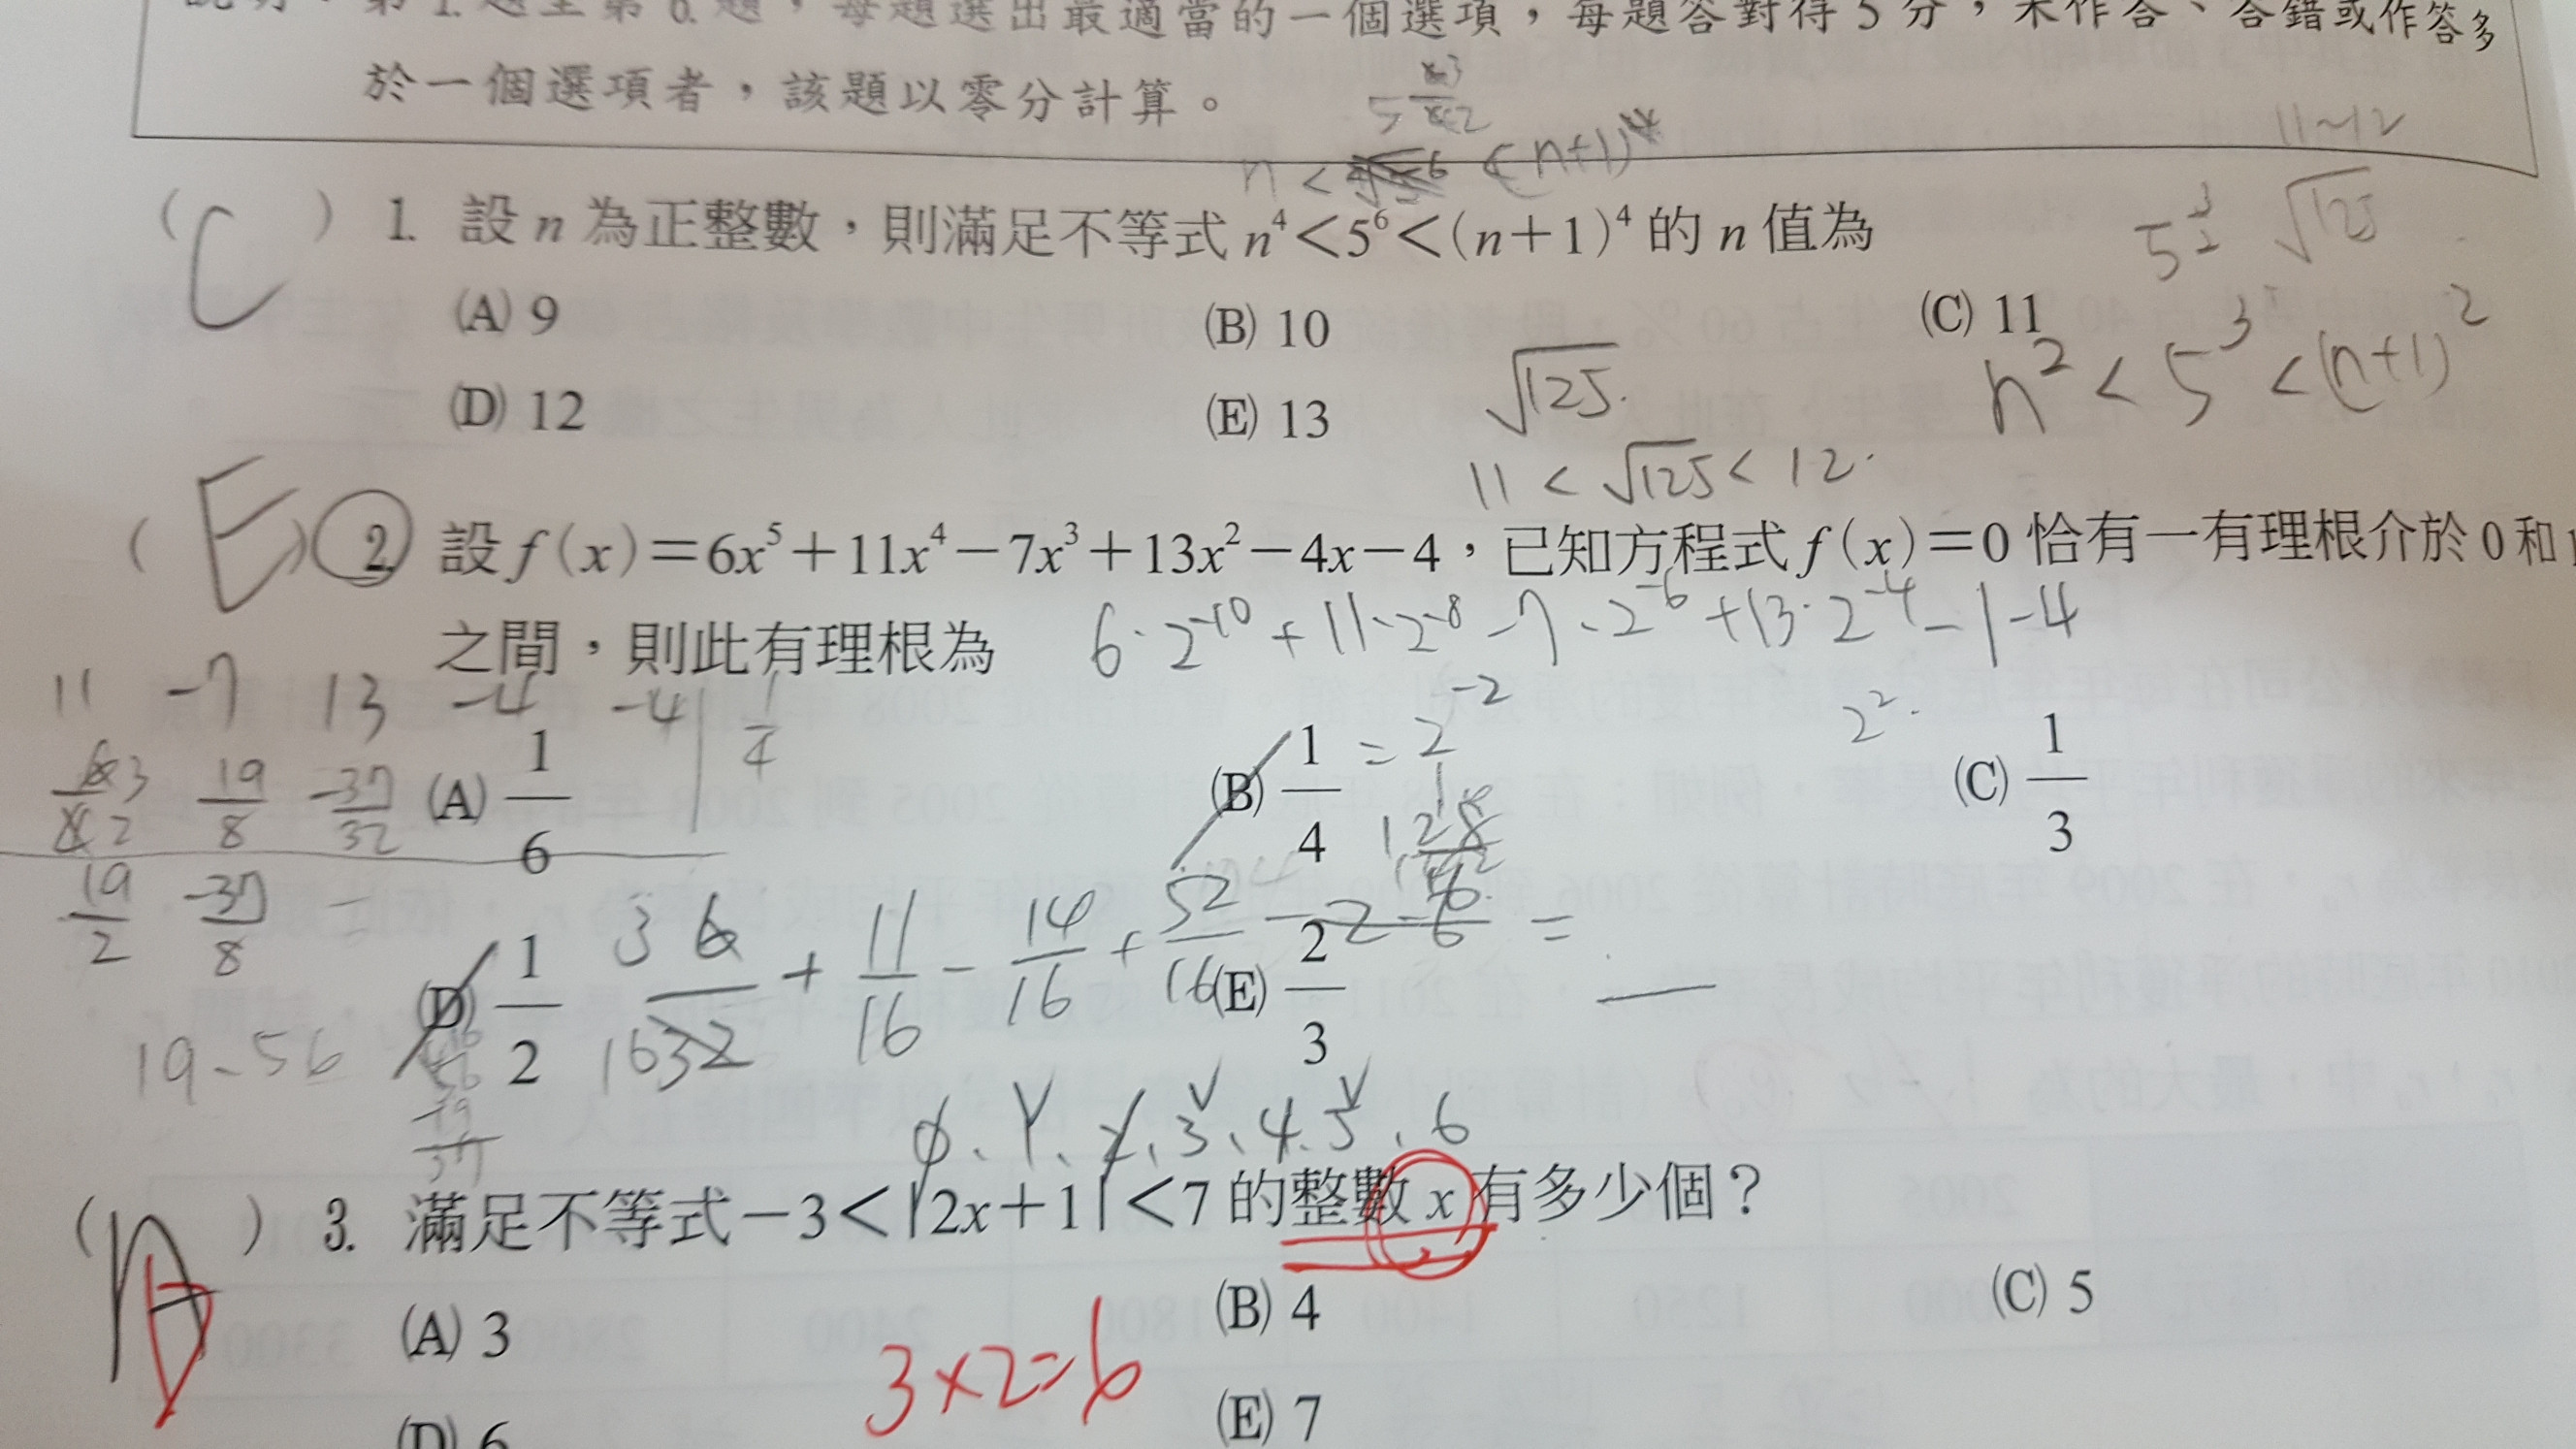 說明：第1.題至第6.題，每題選出最適當的一個選項，每題答對得5分，未作答、答錯或作答多
於一個選項者，該題以零分計算。
5
n < < (n+1)
11~12
(C) 1. 設 n 為正整數，則滿足不等式 n⁴＜5⁶＜(n＋1)⁴ 的 n 值為
5^(3/2) √125
(A) 9 (B) 10 (C) 11
n² < 5³ < (n+1)²
(D) 12 (E) 13
√125
11 < √125 < 12
(E) 2. 設 f(x)＝6x⁵＋11x⁴－7x³＋13x²－4x－4，已知方程式 f(x)＝0 恰有一有理根介於 0 和 1
之間，則此有理根為
6·2⁻¹⁰ + 11·2⁻⁸ - 7·2⁻⁶ + 13·2⁻⁴ - 1 - 4
11 -7 13 -4 -4 | 1/4
(A) 1/6 (B) 1/4 = 2⁻² 2² (C) 1/3
19/8 -37/32
19/2 -37/8 -
(D) 1/2 (E) 2/3
+ 11/16 - 14/16 + 52/16 =
19-56
0、1、2、3、4、5、6
( ) 3. 滿足不等式－3＜|2x＋1|＜7 的整數 x 有多少個？
(A) 3 (B) 4 (C) 5
3×2=6
(D) 6 (E) 7